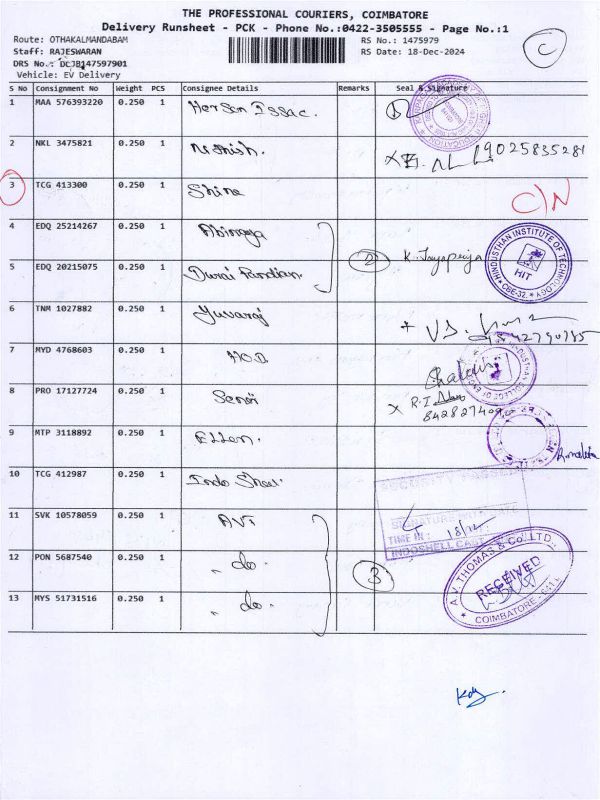 THE PROFESSIONAL COURIERS, COIMBATORE
Delivery Runsheet - PCK - Phone No.:0422-3505555 - Page No.:1
Route: OTHAKALMANDABAM RS No.: 1475979
Staff: RAJESWARAN RS Date: 18-Dec-2024
DRS No.: DCJB147597901
Vehicle: EV Delivery
C
S No Consignment No Weight PCS Consignee Details Remarks Seal & Signature
1 MAA 576393220 0.250 1 Herson Issac.
2 NKL 3475821 0.250 1 Nithish. 9025835281
3 TCG 413300 0.250 1 Shine C/N
4 EDQ 25214267 0.250 1 Abinaya
2 K. Jayapriya
HINDUSTHAN INSTITUTE OF TECHNOLOGY
HIT
CBE-32.
5 EDQ 20215075 0.250 1 Durai Pandian.
6 TNM 1027882 0.250 1 Yuvaraj
7 MYD 4768603 0.250 1 H.O.D
8 PRO 17127724 0.250 1
9 MTP 3118892 0.250 1 Ellen.
10 TCG 412987 0.250 1 Indo Shell
SECURITY PASSED
SIGNATURE WITH DATE
TIME IN : 18/12
11 SVK 10578059 0.250 1 AVT
12 PON 5687540 0.250 1 " do.
3
13 MYS 51731516 0.250 1 " do.
A.V. THOMAS & Co. LTD.,
RECEIVED
COIMBATORE